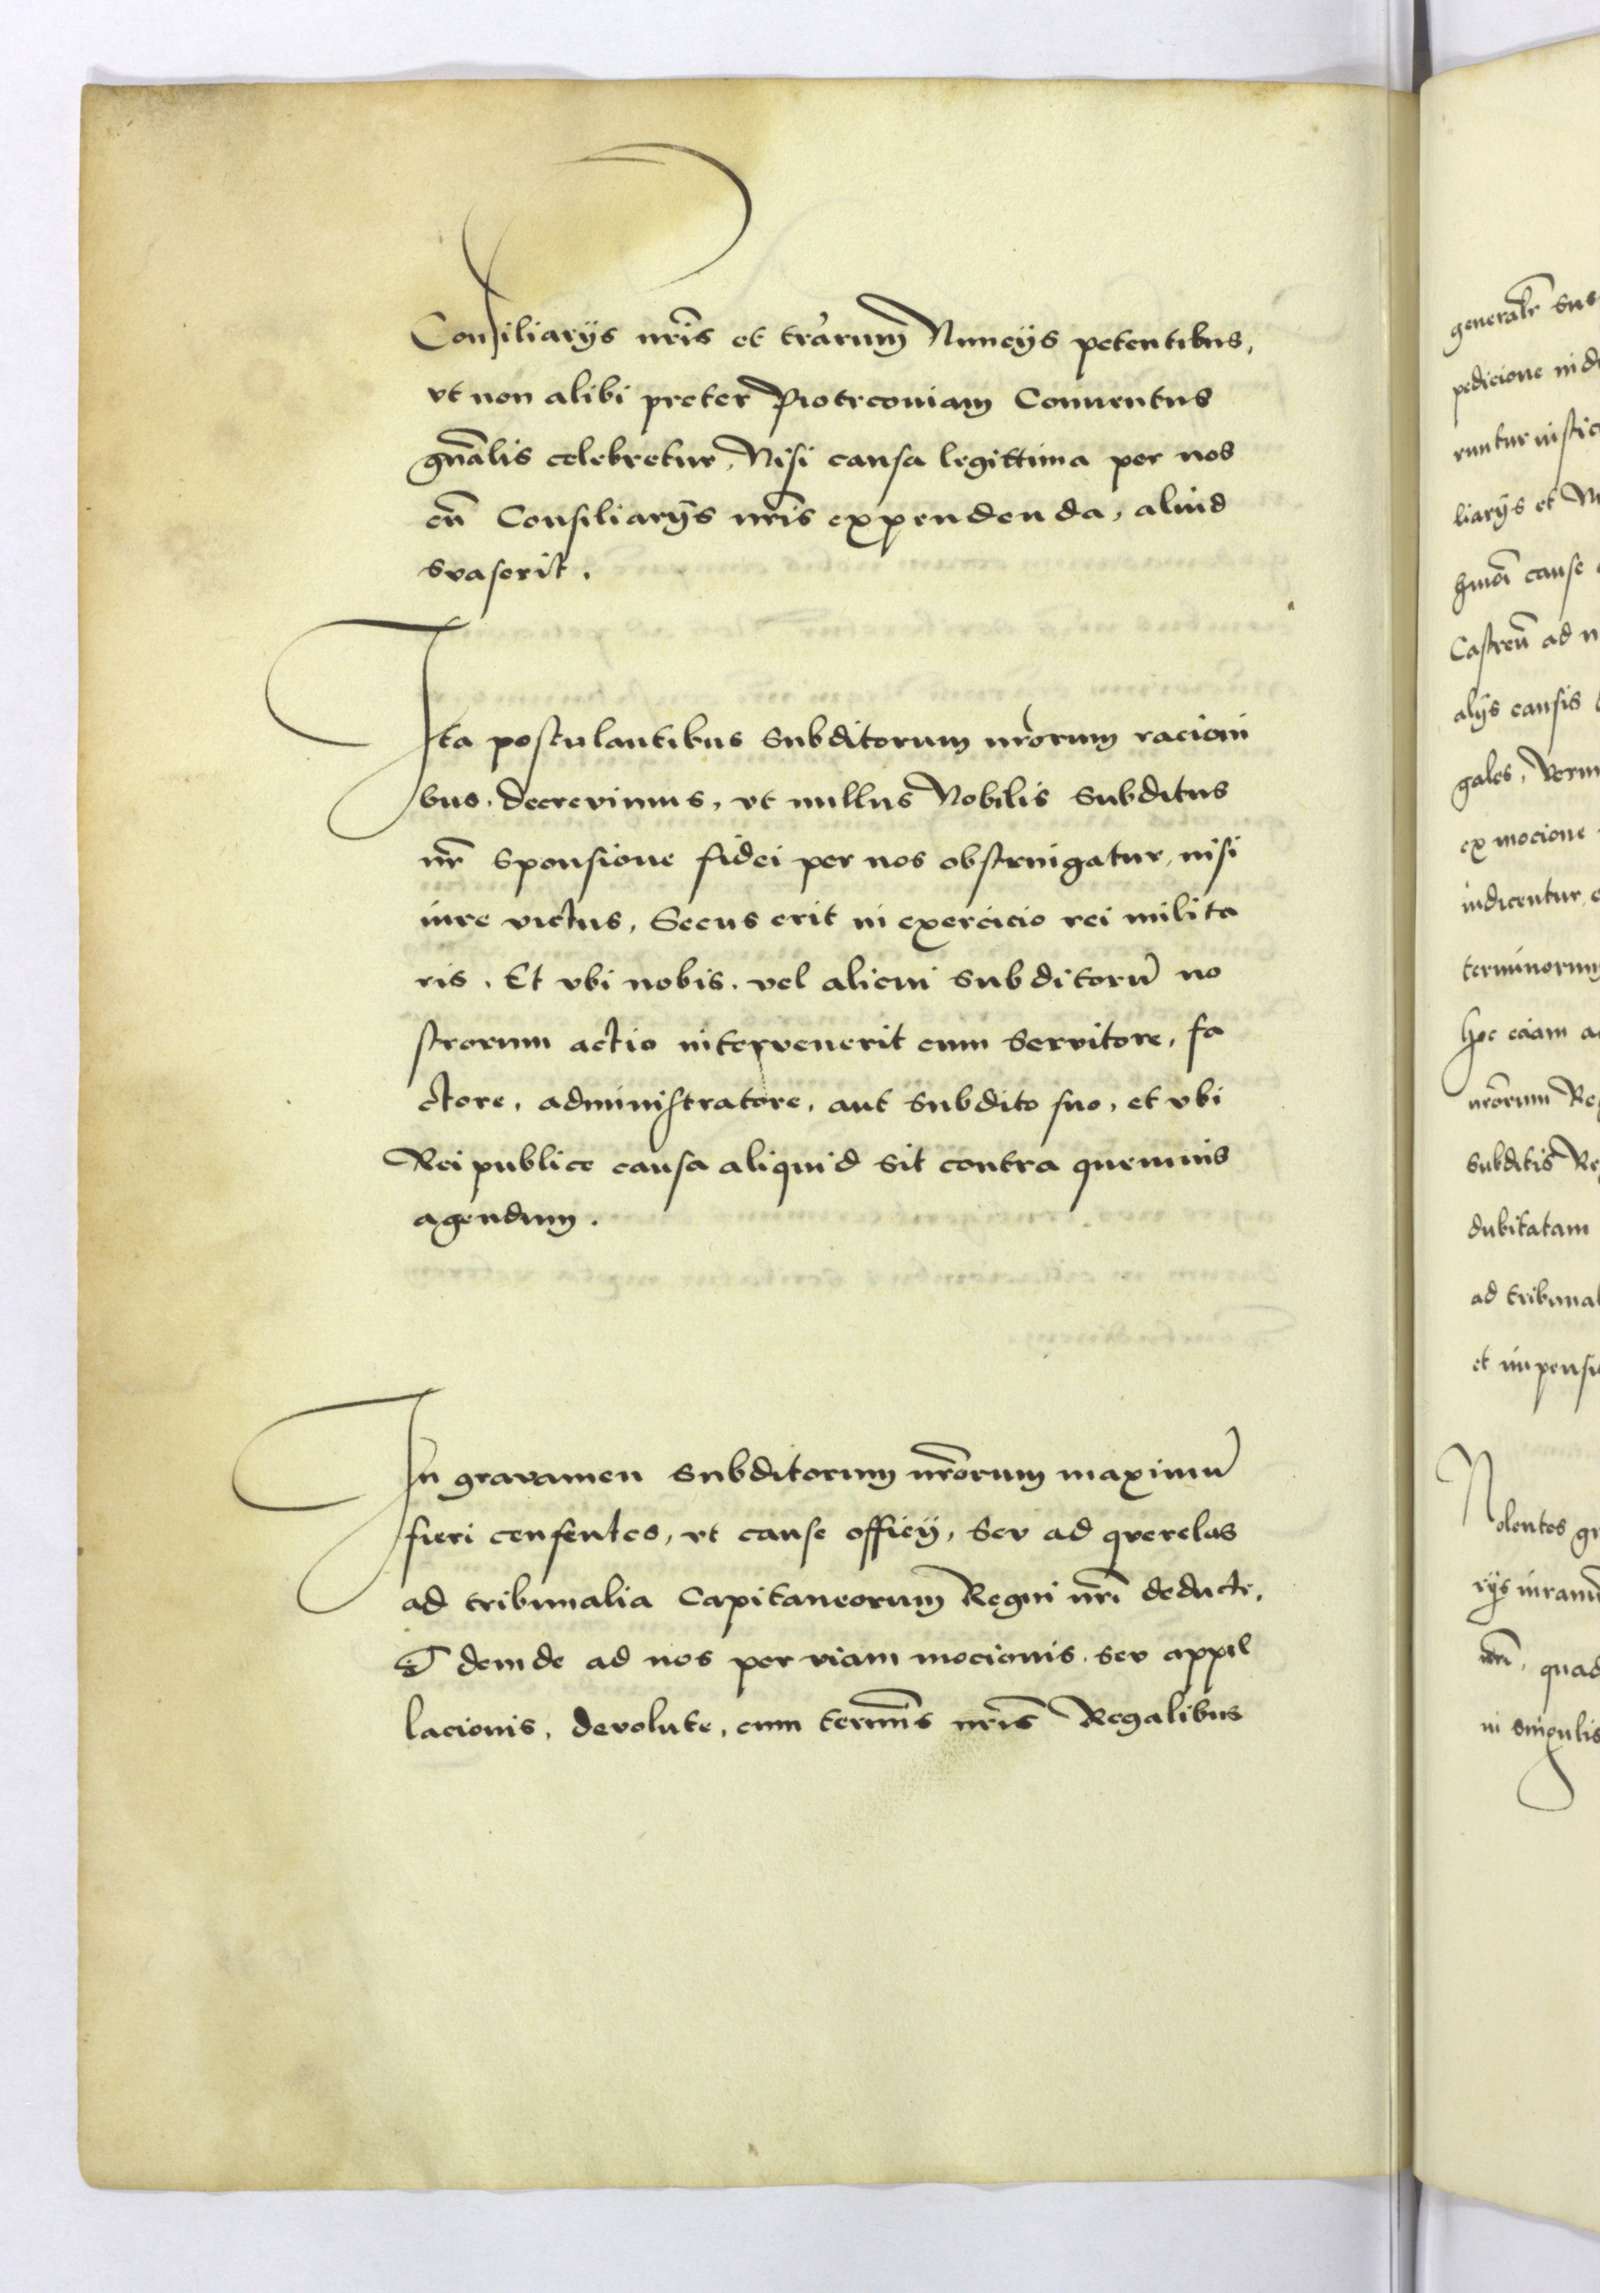 Consiliarijs nr̃is et tr̃arum Nuncijs petentibus,
vt non alibi preter Piotrcoviam Conuentus
gñalis celebretur, Nisi causa legittima per nos
cũ Consiliarijs nr̃is expendenda, aliud
svaserit.
Ita postulantibus Subditorum nr̃orum racioni
bus, decrevimus, vt nullus Nobilis Subditus
nr̃ sponsione fidei per nos obstringatur, nisi
iure victus, Secus erit in exercicio rei milita
ris. Et vbi nobis, vel alicui Subditorũ no
strorum actio intervenerit cum Servitore, fa
ctore, administratore, aut Subdito suo, et vbi
Rei publice causa aliquid sit contra quemuis
agendum.
In gravamen Subditorum nr̃orum maximũ
fieri censentes, vt cause officij, Sev ad qverelas
ad tribunalia Capitaneorum Regni nr̃i deducte,
deinde ad nos per viam mocionis, sev appel
lacionis, devolute, cum termĩs nr̃is Regalibus
generalr̃
pedicione
runtur
liarijs et
hmõi cause
Castreñ ad
alijs causis
gales, Verum
ex mocione
iudicentur,
terminorum
hoc eciam
nr̃orum
Subditis
dubitatam
ad tribunal
et impensis
Nolentes
nr̃i, quad
in singulis